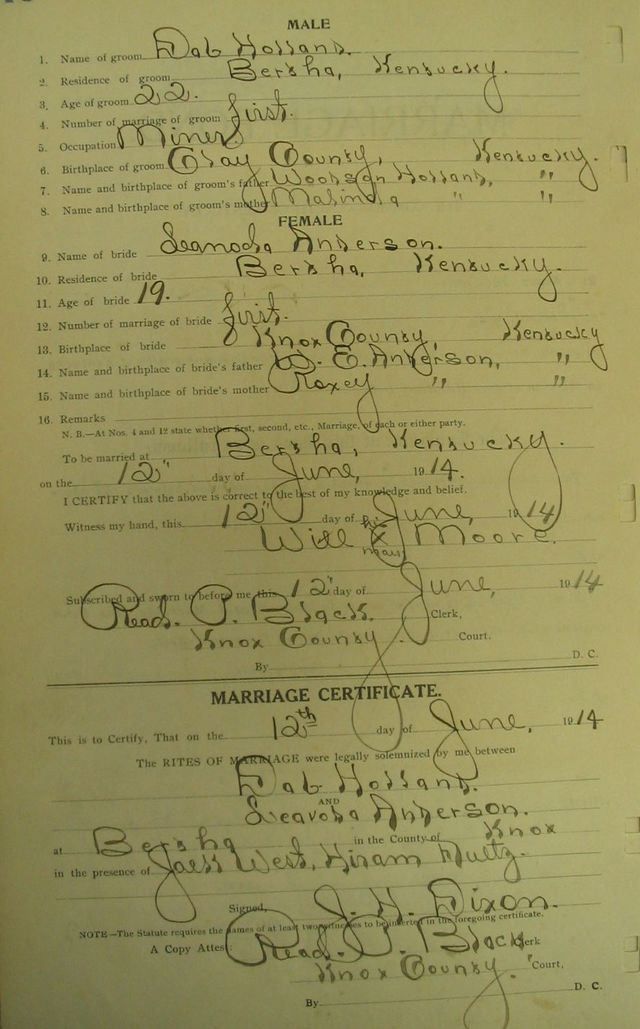 MALE
1. Name of groom Dab Holland.
2. Residence of groom Bertha, Kentucky.
3. Age of groom 22.
4. Number of marriage of groom first.
5. Occupation Miner.
6. Birthplace of groom Clay County, Kentucky.
7. Name and birthplace of groom's father Woodson Holland, " "
8. Name and birthplace of groom's mother Malinda " "
FEMALE
9. Name of bride Anderson.
10. Residence of bride Bertha, Kentucky.
11. Age of bride 19.
12. Number of marriage of bride first.
13. Birthplace of bride Knox County, Kentucky
14. Name and birthplace of bride's father E. Anderson, "
15. Name and birthplace of bride's mother Roxey " "
16. Remarks
N. B.—At Nos. 4 and 12 state whether first, second, etc., Marriage, of each or either party.
To be married at Bertha, Kentucky.
on the 12" day of June, 1914.
I CERTIFY that the above is correct to the best of my knowledge and belief.
Witness my hand, this 12" day of June, 1914
his
Will X Moore.
mark
Subscribed and sworn to before me this 12" day of June, 1914
Read. P. Black. Clerk,
Knox County. Court.
By D. C.
MARRIAGE CERTIFICATE.
This is to Certify, That on the 12th day of June, 1914
The RITES OF MARRIAGE were legally solemnized by me between
Dab Holland.
AND
Anderson.
at Bertha in the County of Knox
in the presence of West, Hiram Hultz.
Signed, J. H. Dixon.
NOTE—The Statute requires the names of at least two witnesses to be inserted in the foregoing certificate.
A Copy Attest Read. P. Black Clerk
Knox County. Court,
By D. C.